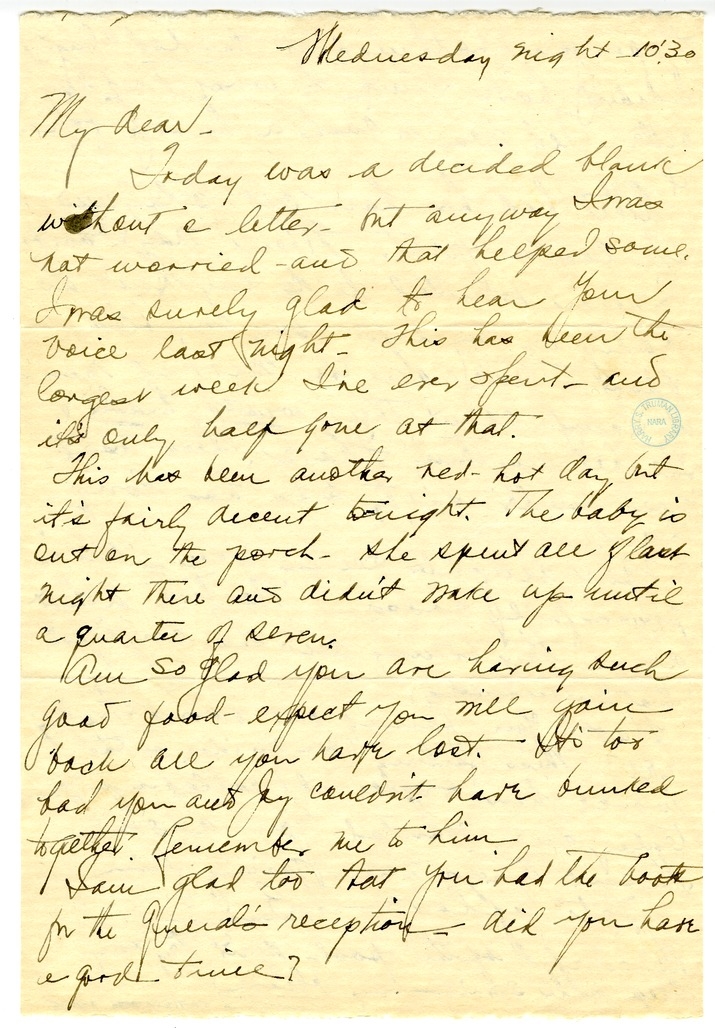 Wednesday night - 10:30
My dear -
Today was a decided blank
without a letter - but anyway I was
not worried - and that helped some.
I was surely glad to hear your
voice last night - This has been the
longest week I've ever spent - and
it's only half gone at that.
This has been another red-hot day but
it's fairly decent tonight. The baby is
out on the porch - she spent all of last
night there and didn't wake up until
a quarter of seven.
Am so glad you are having such
good food - expect you will gain
back all you have lost. It's too
bad you and Jay couldn't have bunked
together. Remember me to him
I am glad too that you had the boots
for the General's reception - did you have
a good time?
HARRY S. TRUMAN LIBRARY
NARA